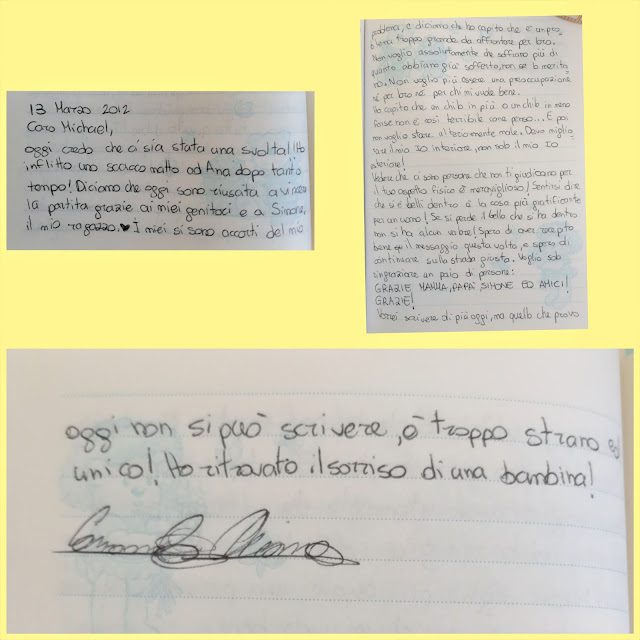 13 Marzo 2012
Caro Michael,
oggi credo che ci sia stata una svolta! Ho
inflitto uno scacco matto ad Ana dopo tanto
tempo! Diciamo che oggi sono riuscita a vincere
la partita grazie ai miei genitori e a Simone,
il mio ragazzo. ♥ I miei si sono accorti del mio
problema, e diciamo che ho capito che è un pro
blema troppo grande da affrontare per loro.
Non voglio assolutamente che soffrano più di
quanto abbiano già sofferto, non se lo merita
no. Non voglio più essere una preoccupazione
né per loro né per chi mi vuole bene.
Ho capito che un chilo in più o un chilo in meno
forse non è così terribile come penso... E poi
non voglio stare ulteriormente male. Devo miglio
rare il mio Io interiore, non solo il mio Io
esteriore!
Vedere che ci sono persone che non ti giudicano per
il tuo aspetto fisico è meraviglioso! Sentirsi dire
che si è belli dentro è la cosa più gratificante
per un uomo! Se si perde il bello che si ha dentro
non si ha alcun valore! Spero di aver recepito
bene il messaggio questa volta, e spero di
continuare sulla strada giusta. Voglio solo
ringraziare un paio di persone:
GRAZIE MAMMA, PAPÀ, SIMONE ED AMICI!
GRAZIE!
Vorrei scrivere di più oggi, ma quello che provo
oggi non si può scrivere, è troppo strano ed
unico! Ho ritrovato il sorriso di una bambina!